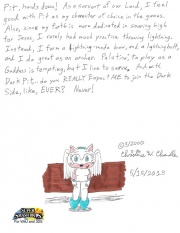 Pit, hands down! As a servant of our Lord, I feel
good with Pit as my character of choice in the games.
Also, since my faith is more dedicated in soaring high
for Jesus, I rarely had much practice throwing lightning.
Instead, I form a lightning-made bow, and a lightning bolt,
and I do great as an archer. Palutena, to play as a
Goddess is tempting, but I live to serve. And with
Dark Pit.. do you REALLY Expect ME to join the Dark
Side, like, EVER? Never!
©3/2000
Christine W. Chandler
5/15/2023
SUPER
SMASH BROS.